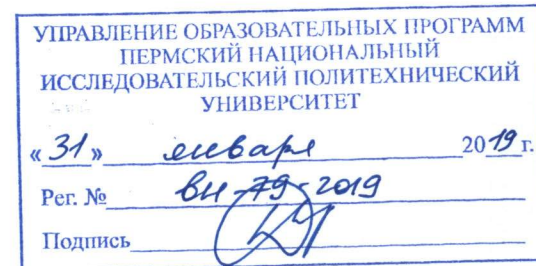 УПРАВЛЕНИЕ ОБРАЗОВАТЕЛЬНЫХ ПРОГРАММ
ПЕРМСКИЙ НАЦИОНАЛЬНЫЙ
ИССЛЕДОВАТЕЛЬСКИЙ ПОЛИТЕХНИЧЕСКИЙ
УНИВЕРСИТЕТ
«31» января 2019 г.
Рег. № ВН-79-2019
Подпись